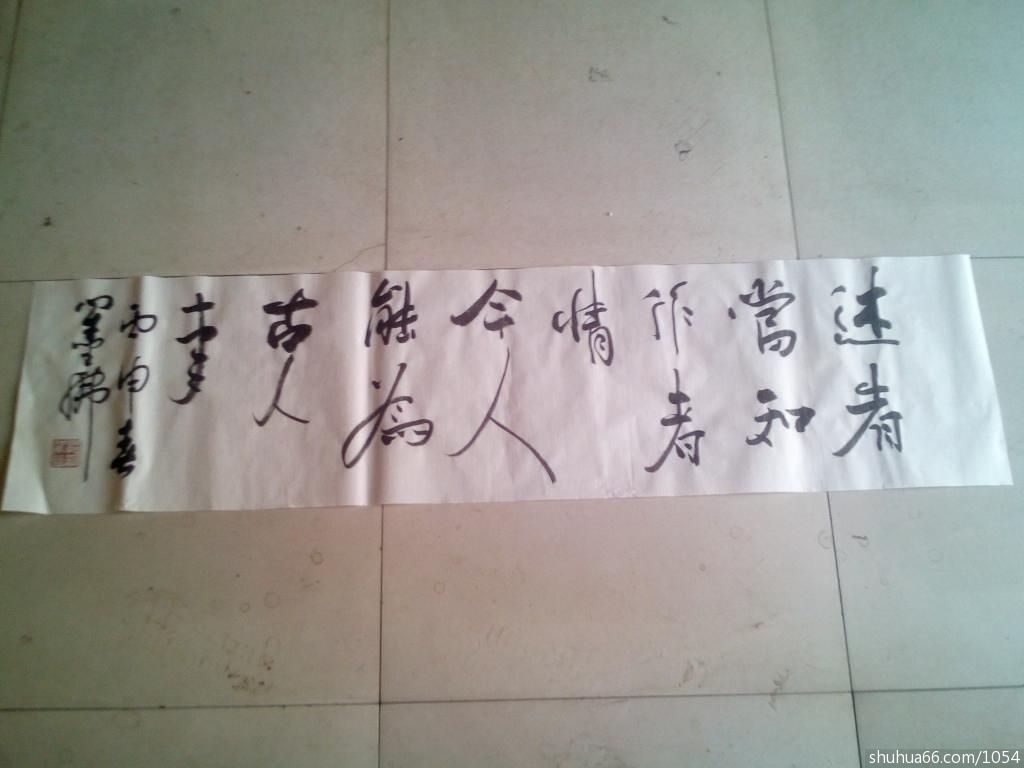 述者
當知
作者
情
今人
能為
古人
事
丙申春
shuhua66.com/1054